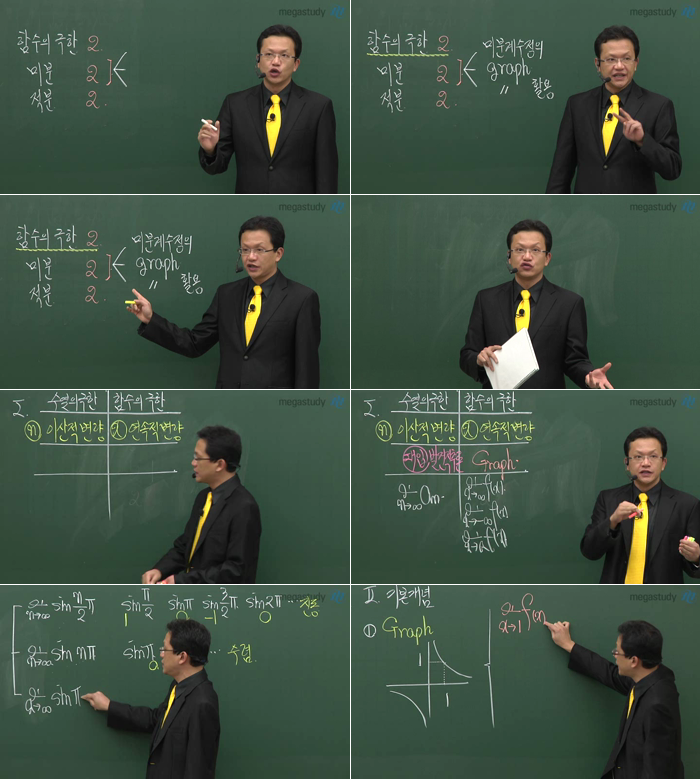 megastudy
함수의 극한 2.
미분 2
적분 2.
megastudy
함수의 극한 2.
미분 2
적분 2.
미분계수정의
graph
〃 활용
megastudy
함수의 극한 2.
미분 2
적분 2.
미분계수정의
graph
〃 활용
megastudy
megastudy
I. 수열의극한 함수의 극한
(n) 이산적변량 (x) 연속적변량
megastudy
I. 수열의극한 함수의 극한
(n) 이산적변량 (x) 연속적변량
Graph.
lim n→∞ an.
lim x→∞ f(x).
lim x→-∞ f(x)
lim x→a f(x)
megastudy
lim n→∞ sin n/2 π sin π/2 sin π sin 3/2 π. sin 2π ··· 진동
1 0 -1 0
lim n→∞ sin nπ sin π ··· 수렴.
0
lim x→∞ sin π
megastudy
II. 기본개념
① Graph
1
1
lim x→1 f(x)